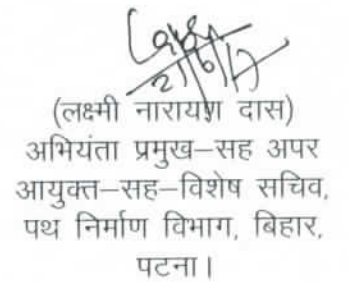 2/6/17
(लक्ष्मी नारायण दास)
अभियंता प्रमुख–सह अपर
आयुक्त–सह–विशेष सचिव,
पथ निर्माण विभाग, बिहार,
पटना।